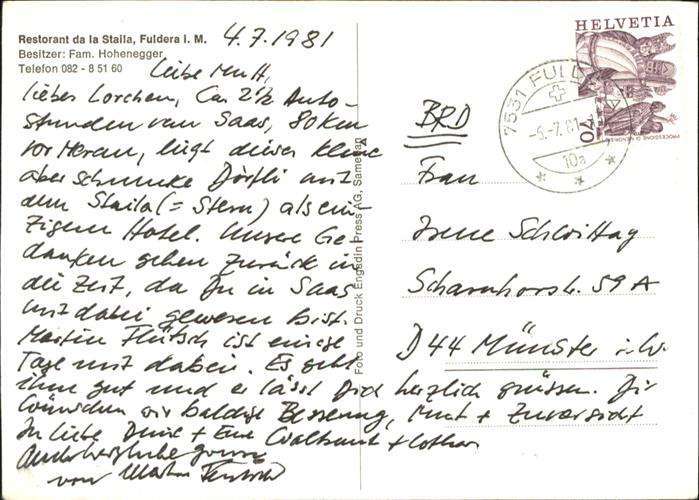 Restorant da la Staila, Fuldera i. M.
Besitzer: Fam. Hohenegger
Telefon 082 - 8 51 60
4.7.1981
Liebe Mutt,
liebes Lorchen, Ca 2½ Auto-
stunden von Saas, 80 km
vor Meran, liegt dieses kleine
aber schmucke Dörfli mit
dem Staila (= Stern) als ein-
zigem Hotel. Unsere Ge-
danken gehen zurück in
die Zeit, da Du in Saas
mit dabei gewesen bist.
Martin Flütsch ist einige
Tage mit dabei. Es geht
ihm gut und er lässt Dich herzlich grüssen. Dir
wünschen wir baldige Besserung, Mut + Zuversicht
In Liebe Deine + Eure Waltraut + Lothar
Auch herzliche Grüsse
von Martin Flütsch
Foto und Druck Engadin Press AG, Samedan
HELVETIA
70
7531 FULDERA
-6.-7.81
10a
BRD
Frau
Irene Schlvittay
Scharnhorststr. 59 A
D 44 Münster i. W.